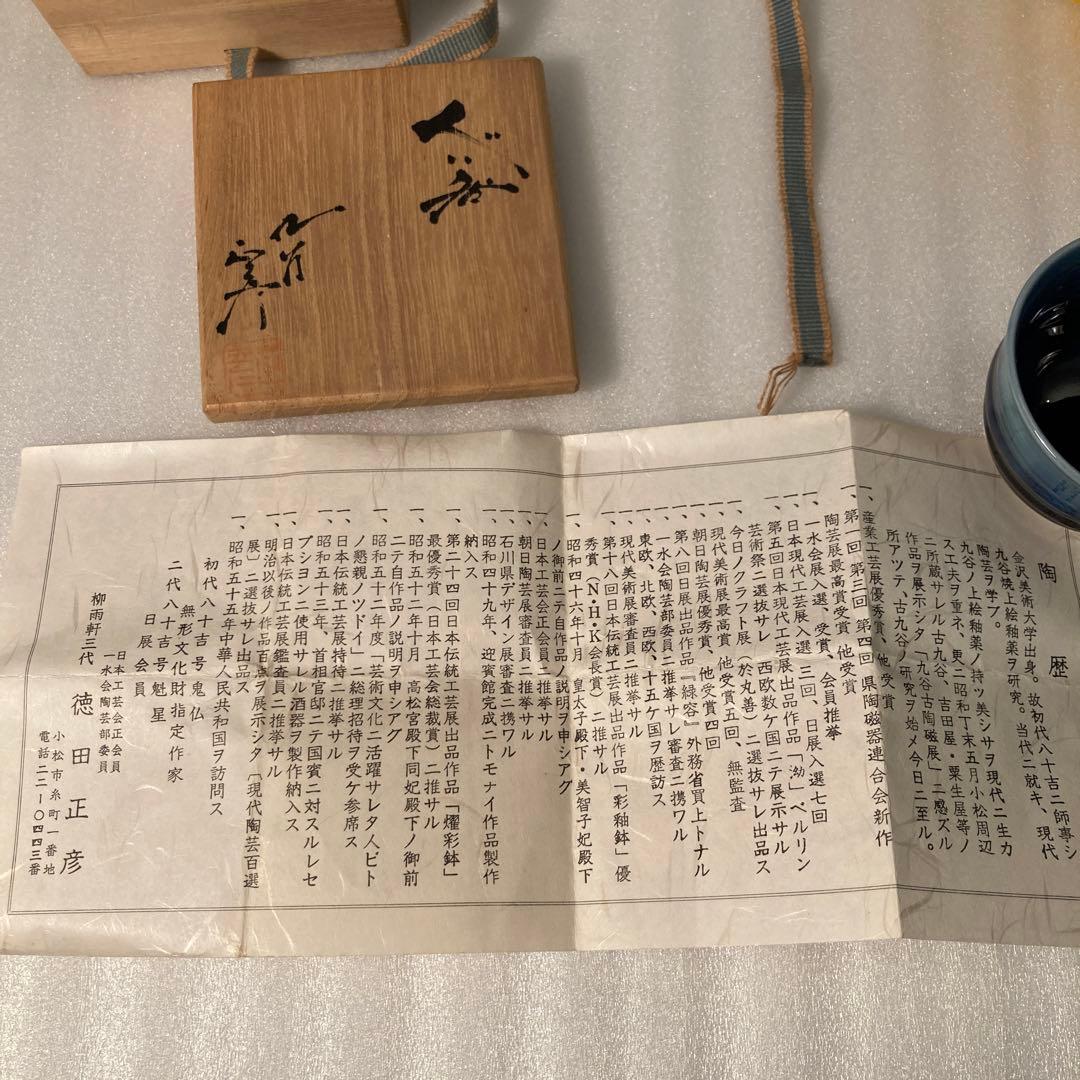 陶歴
金沢美術大学出身。故初代八十吉ニ師事シ
九谷焼上絵釉薬ヲ研究。当代ニ就キ、現代
陶芸ヲ学ブ。
九谷ノ上絵釉薬ノ持ツ美シサヲ現代ニ生カ
ス工夫ヲ重ネ、更ニ昭和丁末五月小松周辺
ニ所蔵サレル古九谷、吉田屋・粟生屋等ノ
作品ヲ展示シタ「九谷古陶磁展」ニ感ズル
所アツテ、古九谷ノ研究ヲ始メ今日ニ至ル。
一、産業工芸展優秀賞、他受賞
一、第一回第三回第四回県陶磁器連合会新作
陶芸展最高賞受賞 他受賞
一、一水会展入選、受賞、会員推挙
一、日本現代工芸展入選三回、日展入選七回
一、第五回日本現代工芸展出品作品「泑」ベルリン
芸術祭ニ選抜サレ 西欧数ケ国ニテ展示サル
一、今日ノクラフト展（於丸善）ニ選抜サレ出品ス
一、現代美術展最高賞 他受賞五回、無監査
一、朝日陶芸展優秀賞、他受賞四回
一、第八回日展出品作品『緑容』外務省買上トナル
一、一水会陶芸部委員ニ推挙サレ審査ニ携ワル
一、東欧、北欧、西欧、十五ケ国ヲ歴訪ス
一、現代美術展審査員ニ推挙サル
一、第十八回日本伝統工芸展出品作品「彩釉鉢」優
秀賞（N・H・K会長賞）ニ推サル
一、昭和四十六年十月 皇太子殿下・美智子妃殿下
ノ御前ニテ自作品ノ説明ヲ申シアグ
一、日本工芸会正会員ニ推挙サル
一、朝日陶芸展審査員ニ推挙サル
一、石川県デザイン展審査ニ携ワル
一、昭和四十九年、迎賓館完成ニトモナイ作品製作
納入ス
一、第二十四回日本伝統工芸展出品作品「燿彩鉢」
最優秀賞（日本工芸会総裁賞）ニ推サル
一、昭和五十二年十月 高松宮殿下同妃殿下ノ御前
ニテ自作品ノ説明ヲ申シアグ
一、昭和五十二年度「芸術文化ニ活躍サレタ人ビト
ノ懇親ノツドイ」ニ総理招待ヲ受ケ参席ス
一、日本伝統工芸展特待ニ推挙サル
一、昭和五十三年、首相官邸ニテ国賓ニ対スルレセ
プシヨンニ使用サレル酒器ヲ製作納入ス
一、日本伝統工芸展鑑査員ニ推挙サル
一、明治以後ノ作品百点ヲ展示シタ〔現代陶芸百選
展〕ニ選抜サレ出品ス
一、昭和五十五年中華人民共和国ヲ訪問ス
初代八十吉号鬼仏
無形文化財指定作家
二代八十吉号魁星
日展会員
日本工芸会正会員
一水会陶芸部委員
柳雨軒三代 徳田正彦
小松市糸町一番地
電話二二-〇四四三番